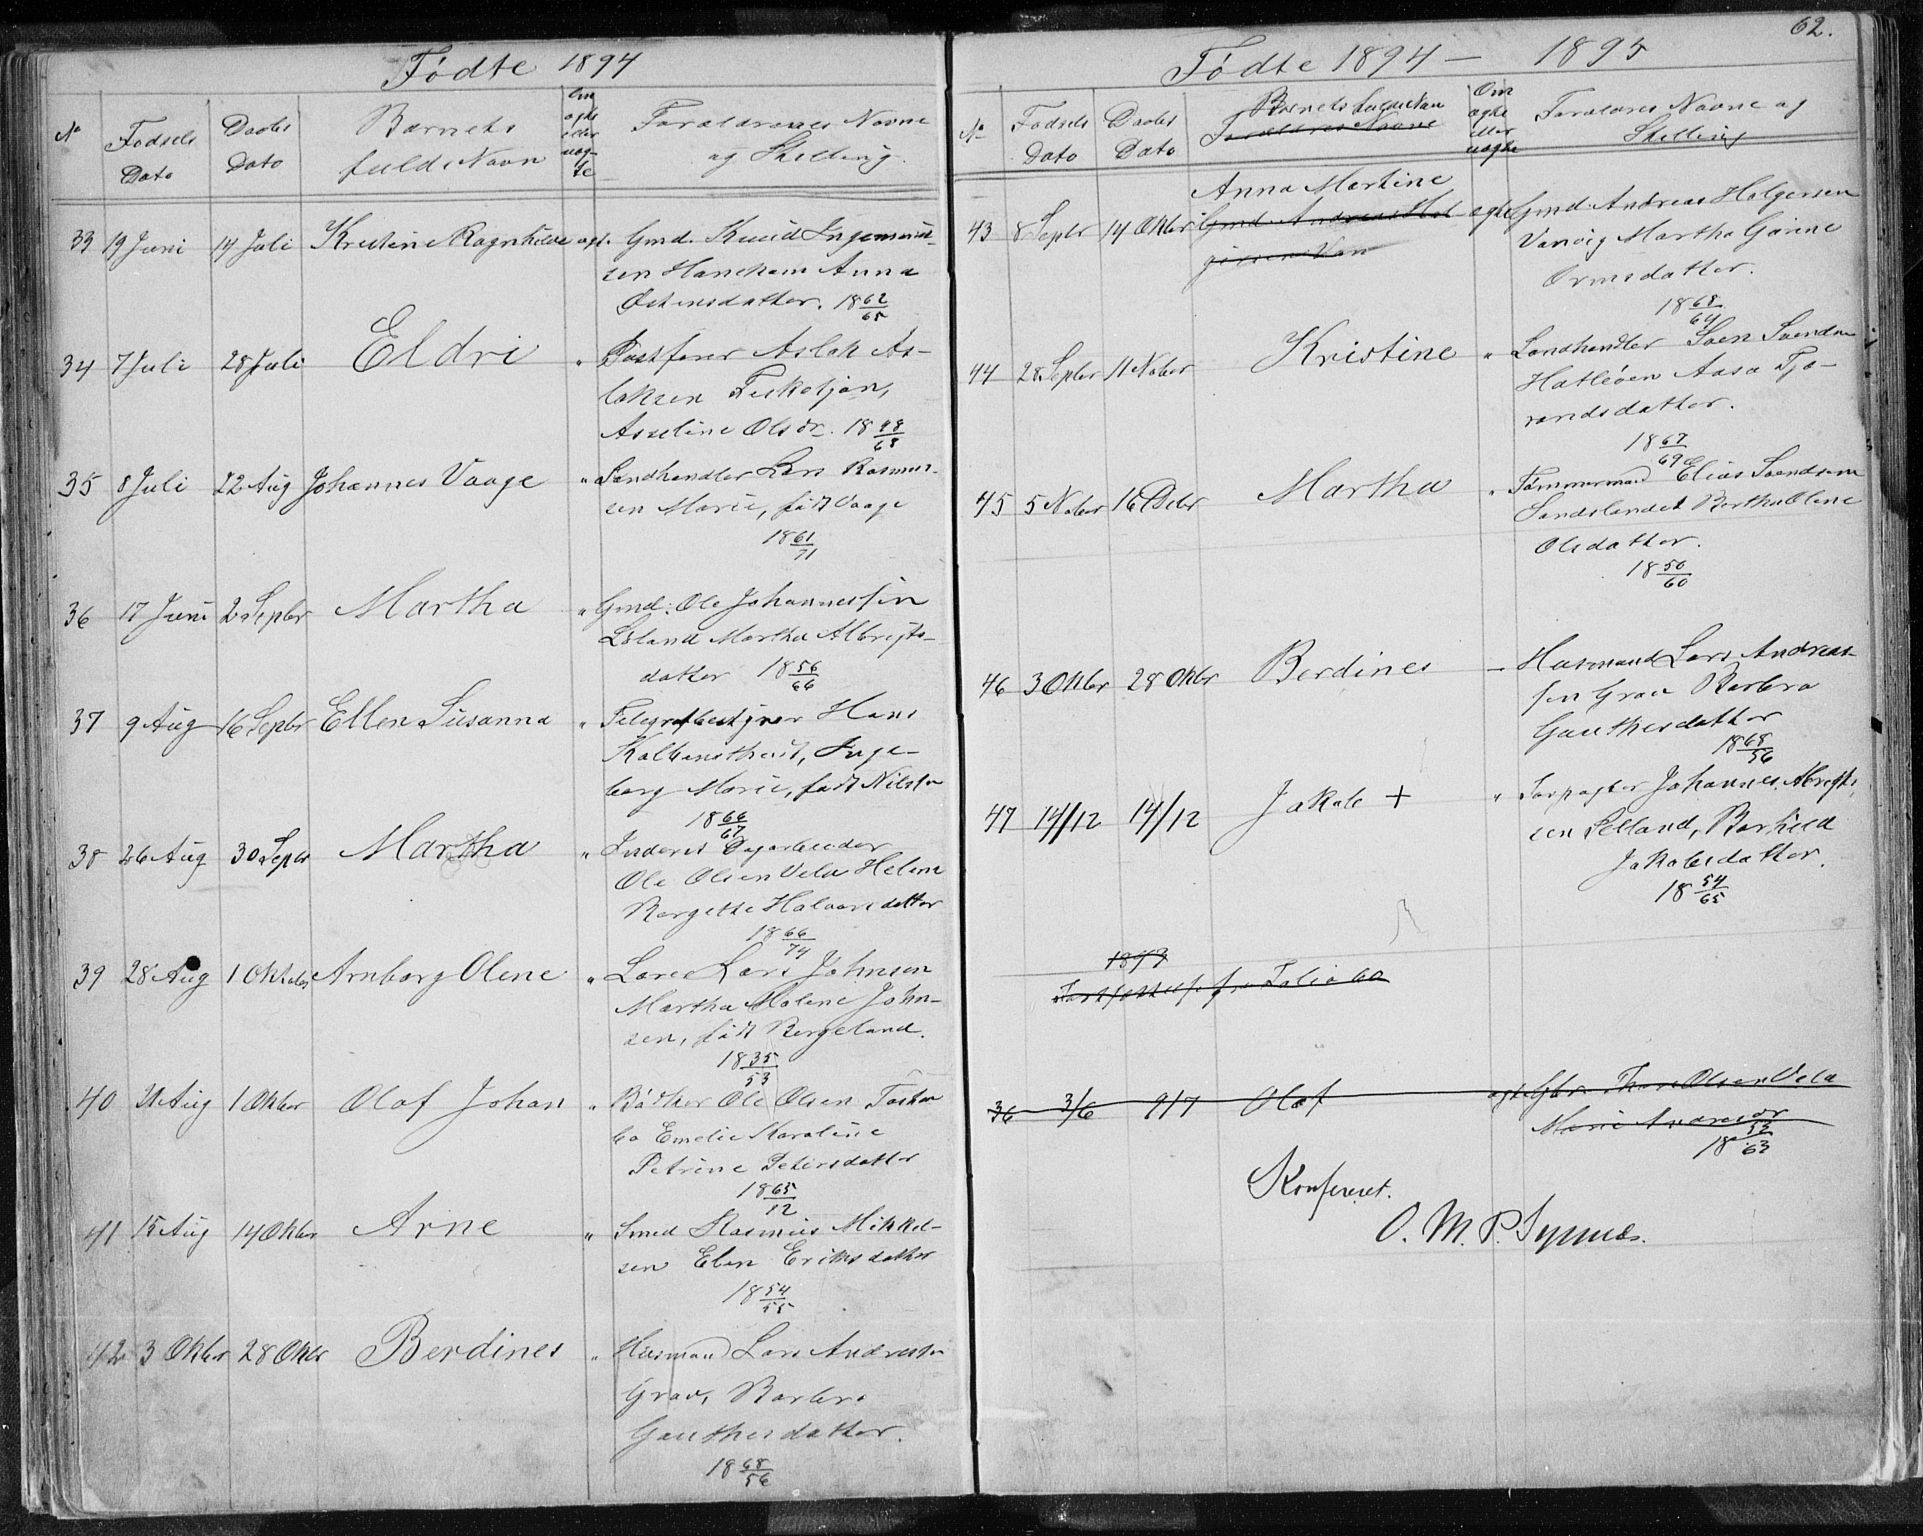 Fødte 1894
No
Fødsels
Dato
Daabs
Dato
Barnets
fulde Navn
Om
ægte
eller
uæg-
te
Forældrenes Navne
og Stilling.
33 19 Juni 14 Juli Kristine Ragnhilda ægt. Gmd. Knud Ingemund-
sen Haneham Anna
Østensdatter. 18 62/65
34 7 Juli 28 Juli Eldri " Postfører Aslak As-
laksen Fisketjøn,
Asseline Olsdr. 18 48/68
35 8 Juli 22 Aug Johannes Vaage " Landhandler Lars Rasmus-
sen Marie, født Vaage
18 61/71
36 17 Juni 2 Septbr Martha " Gmd. Ole Johannessen
Martha Albrigts-
datter 18 56/66
37 9 Aug 16 Septbr Ellen Susanna " Telegrafbestyrer Hans
Inge-
borg Marie, født Nilsen
18 66/67
38 26 Aug 30 Septbr Martha " Inderst Dagarbeider
Ole Olsen Vela Helene
Bergette Halvorsdatter
18 66/74
39 28 Aug 1 Oktober Arnborg Olene " Lars Johnsen
Martha Malene John-
sen, født Bergeland.
18 35/53
40 21 Aug 1 Oktbr Olaf Johan " Bødker Ole Olsen
Emelie Karoline
Petrine Petersdatter
18 65/12
41 15 Aug 14 Oktbr Arne " Smed Rasmus Mikkel-
sen Elen Eriksdatter
18 54/55
42 3 Oktbr 28 Oktbr Berdines " Husmand Lars Andresen
Grav, Barbro
Gauthesdatter.
18 68/56
62.
Fødte 1894 — 1895
No
Fødsels
Dato
Daabs
Dato
Barnets fulde Navn
Forældres Navne
Om
ægte
eller
uægte
Forældres Navne og
Stilling
Anna Martine
43 8 Septbr 14 Oktbr Gmd. Andreas Hol- ægte Gmd. Andreas Holgersen
gersen Van
Vanvig Martha Gurine
Ormsdatter.
18 68/64
44 28 Septbr 11 Novbr Kristine " Landhandler Sven Svendsen
Hatleøen Aasa Tjø-
randsdatter.
18 67/69
45 5 Novbr 16 Decbr Martha " Tømmermand Elias Svendsen
Sandslandet Bertha Olene
Olsdatter.
18 50/60
46 3 Oktbr 28 Oktbr Berdines – Husmand Lars Andreas-
sen Grav Barbra
Gauthesdatter
18 68/56
47 14/12 14/12 Jakob + " Forpagter Johannes Albrigt-
sen Selland, Borhild
Jakobsdatter.
18 54/65
1893
Fortsættelse fra Folio 60
36 3/6 9/7 Olaf ægte Gbr. Thore Olsen Vela
Marie Andresdr
18 53/63
Konfereret.
O. M. P. Synnes.